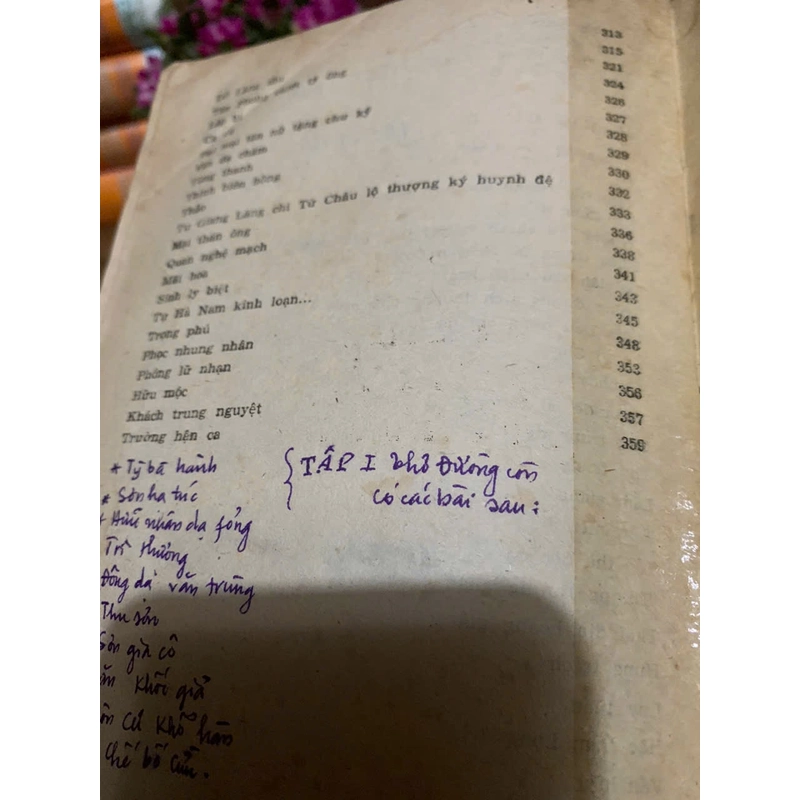 Tứ Lãng
Cả
dạ châm
Tùng thanh
Thích biên hồng
Thảo
Tự Giang Lăng chi Từ Châu lộ thượng ký huynh đệ
Mại thán ông
Quan nghệ mạch
Mãi hoa
Sinh ly biệt
Tự Hà Nam kinh loạn...
Trọng phú
Phọc nhung nhân
Phóng lữ nhạn
Hữu mộc
Khách trung nguyệt
Trường hận ca
313
315
321
324
326
327
328
329
330
332
333
336
338
341
343
345
348
353
356
357
359
* Tỳ bà hành
* Sơn hạ túc
+ Hữu nhân dạ fỏng
Trĩ thương
Đông dạ văn trùng
Thu sơn
giá cô
khối giả
cư khổ hàn
chế bố cừu.
{ TẬP I thơ Đường còn
có các bài sau: